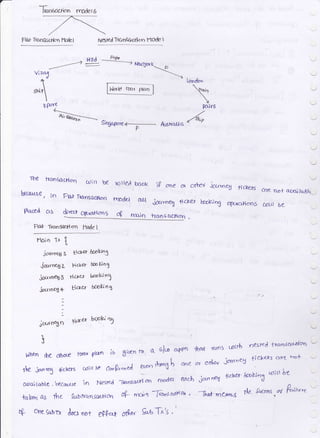 Transaction models
Flat Transaction Model Nested Transaction Model
Hyd flight Newyork
Vizag London
ship World tour plan train
Spore pairs
Air Singapore Australia ship
The transaction will be rolled back if one or other journey tickets are not available,
because, in Flat Transaction model all journey ticket booking operations will be
Placed as direct operations of main transaction.
Flat Transaction Model
Main Tx {
journey 1 ticket booking
journey 2 ticket booking
journey 3 ticket booking
journey 4 ticket booking
journey n ticket booking
}
when the above tour plan is given to a s/w appn that runs with nested transaction
the journey tickets will be confirmed even though one or other journey tickets are not
available. because in Nested Transaction model each journey ticket booking will be
taken as the subtransaction of main Transaction. That means the success or failure
of one sub Tx does not effect other Sub Tx's.